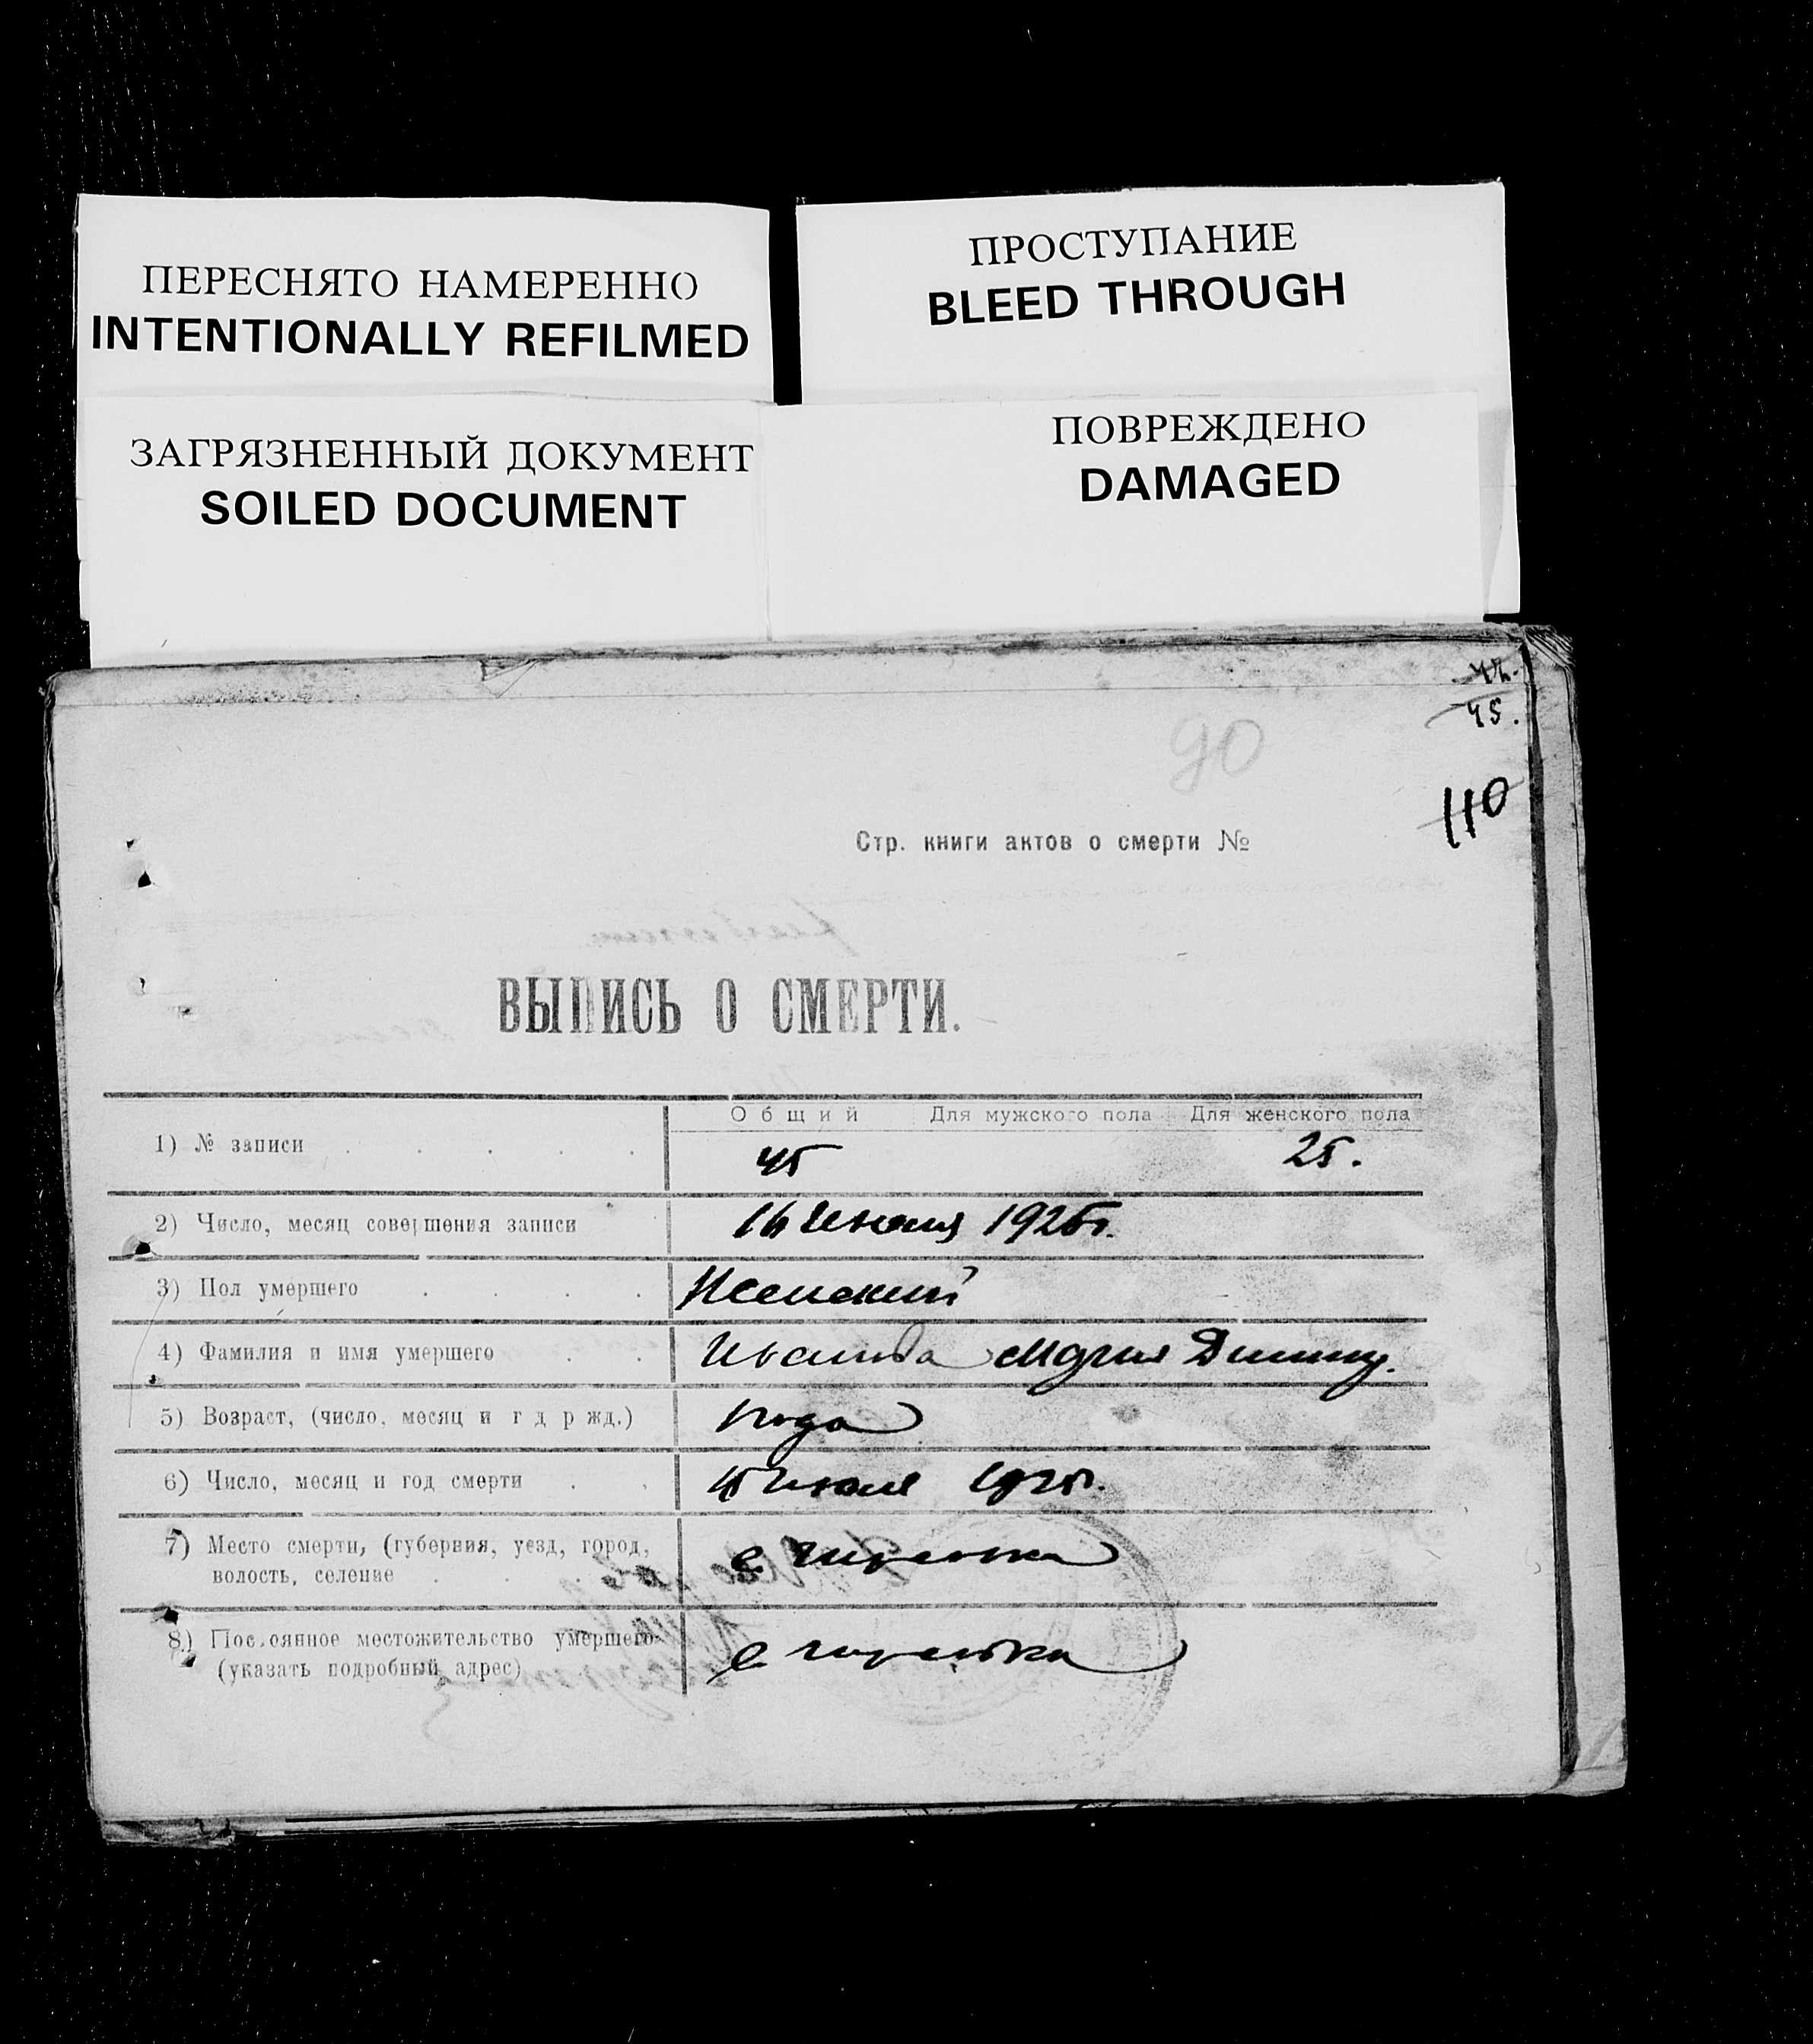 ПЕРЕСНЯТО НАМЕРЕННО
INTENTIONALLY REFILMED
ПРОСТУПАНИЕ
BLEED THROUGH
ЗАГРЯЗНЕННЫЙ ДОКУМЕНТ
SOILED DOCUMENT
ПОВРЕЖДЕНО
DAMAGED
45.
90
110
Стр. книги актов о смерти №
ВЫПИСЬ О СМЕРТИ.
Общий Для мужского пола Для женского пола
1) № записи 45 25.
2) Число, месяц совершения записи 16 192
3) Пол умершего Женский
4) Фамилия и имя умершего Мария
5) Возраст, (число, месяц и г д р жд.) года
6) Число, месяц и год смерти
7) Место смерти, (губерния, уезд, город,
волость, селение с.
8) Постоянное местожительство умершего
(указать подробный адрес) с.